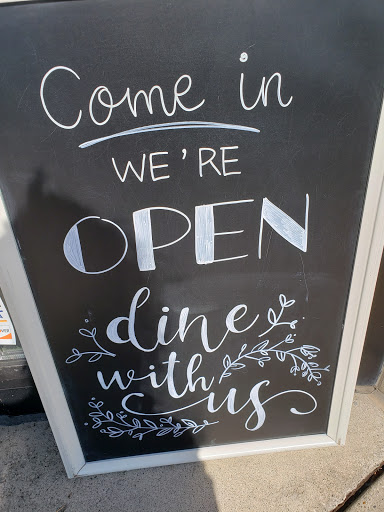 Come in
WE'RE
OPEN
dine
with
us